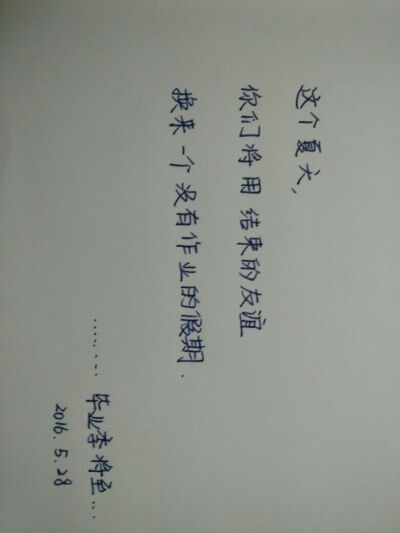 这个夏天，
你们将用结束的友谊
换来一个没有作业的假期.
……毕业季将至…
2016.5.28